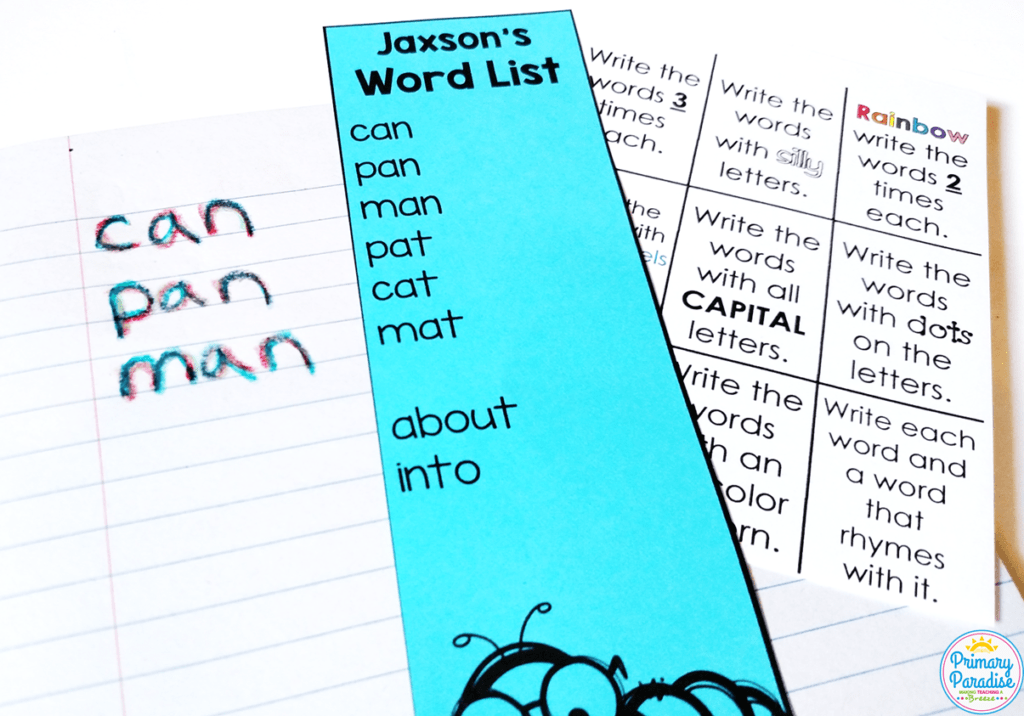 can
pan
man
Jaxson's
Word List
can
pan
man
pat
cat
mat
about
into
Write the
words 3
times
each.
Write the
words
with silly
letters.
Rainbow
write the
words 2
times
each.
the
with
Write the
words
with all
CAPITAL
letters.
Write the
words
with dots
on the
letters.
Write the
words
an
color
Write each
word and
a word
that
rhymes
with it.
Primary
Paradise
MAKING TEACHING A
Breeze